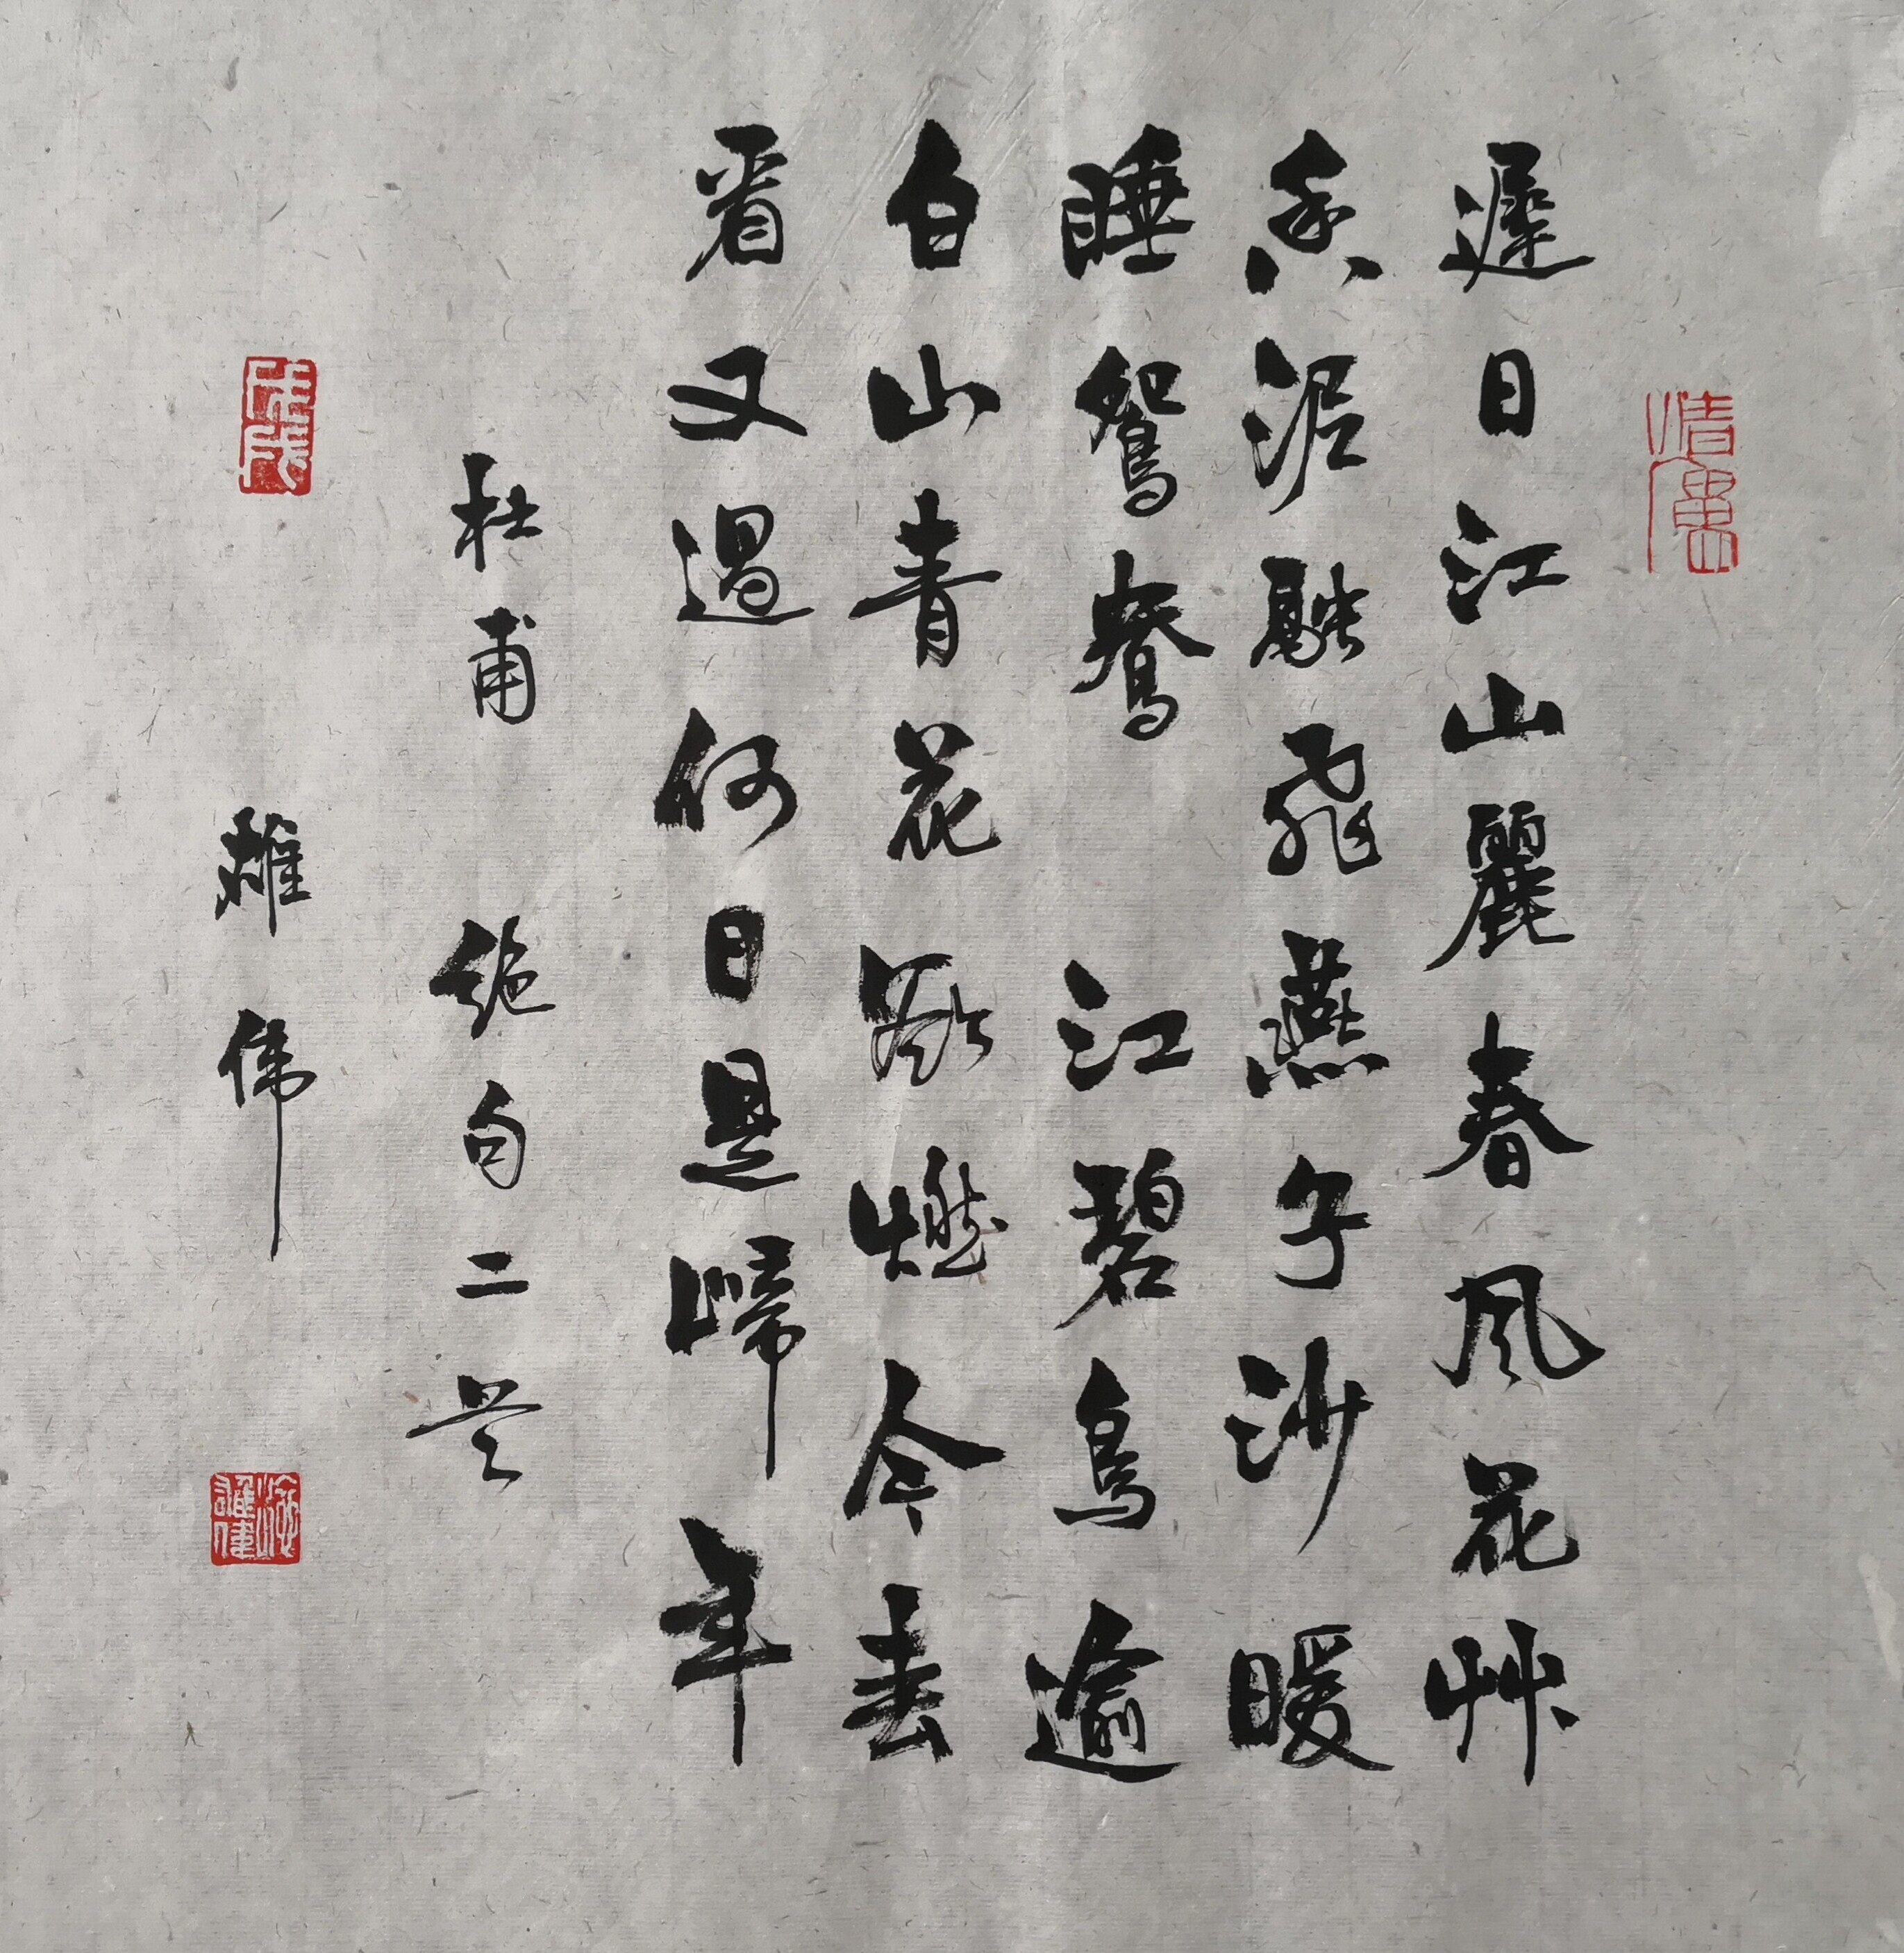 遲日江山麗春風花艸
香泥融飛燕子沙暖
睡鴛鴦 江碧鳥逾
白山青花欲燃今春
看又過何日是歸年
杜甫 絕句二首
戊戌
雄偉